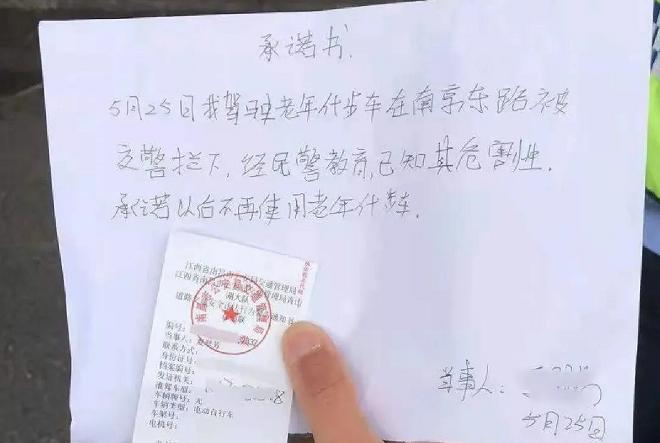 承诺书.
5月25日我驾驶老年代步车在南京东路被
交警拦下,经民警教育,已知其危害性.
承诺以后不再使用老年代步车.
江西省南昌市
交通管理局
江西省南昌市
管理局青山
湖大队
道路
通知书
编号:
当事人:
联系方式:
身份证号:
档案编号:
发证机关:
准驾车型:
车辆牌号:无
车辆类型:电动自行车
车架号:
电机号:
当事人:
5月25日